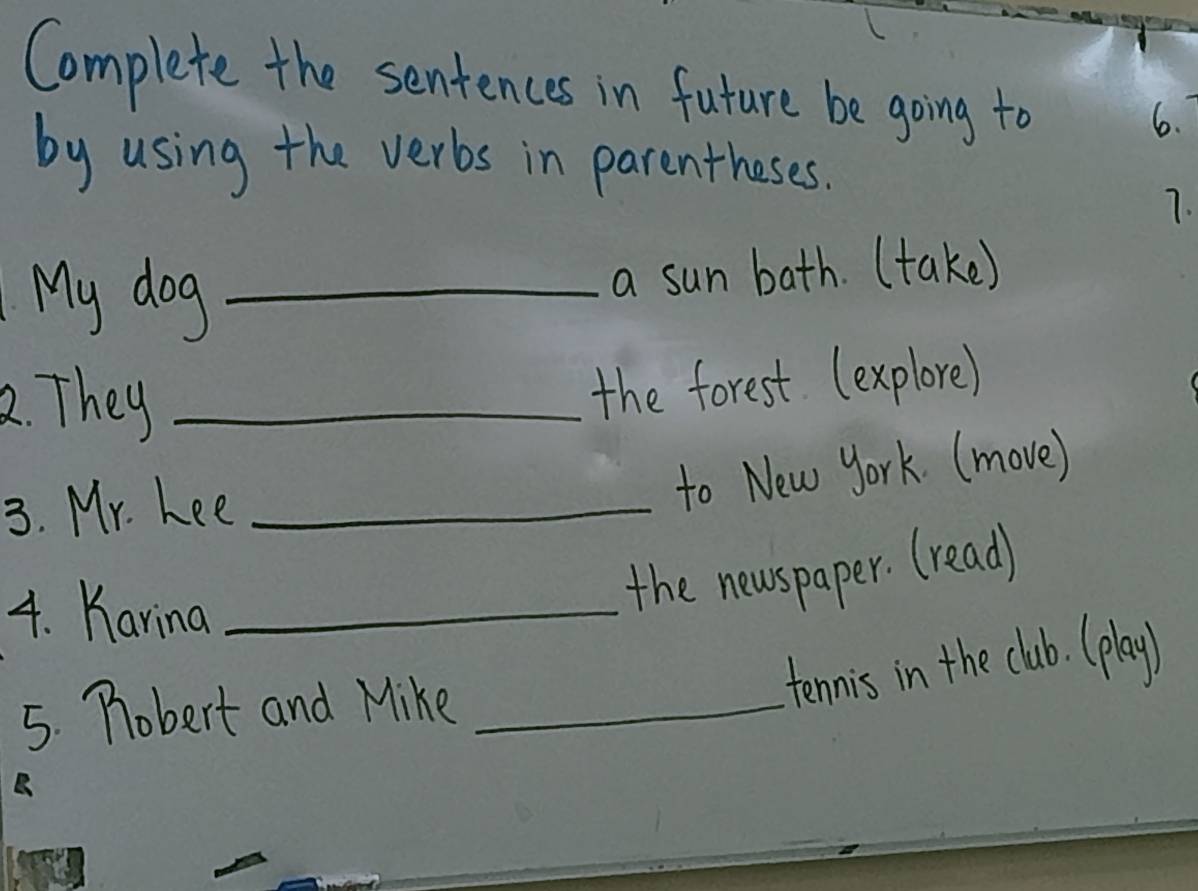 Complete the sentences in future be going to
by using the verbs in parentheses.
1. My dog __________ a sun bath. (take)
2. They __________ the forest. (explore)
3. Mr. Lee __________ to New York. (move)
4. Karina __________ the newspaper. (read)
5. Robert and Mike __________ tennis in the club. (play)
R
6.
7.